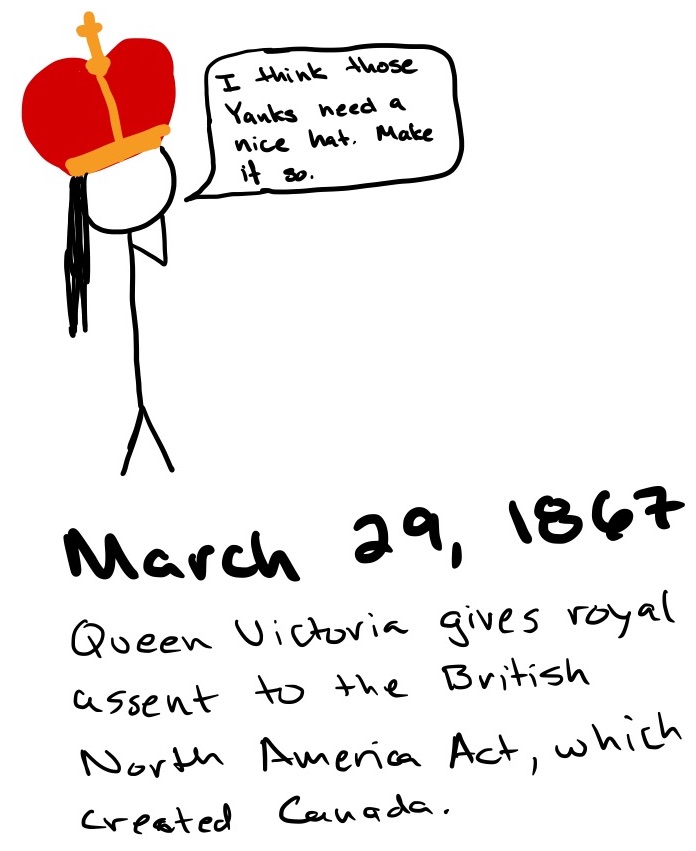 I think those
Yanks need a
nice hat. Make
it so.
March 29, 1867
Queen Victoria gives royal
assent to the British
North America Act, which
created Canada.